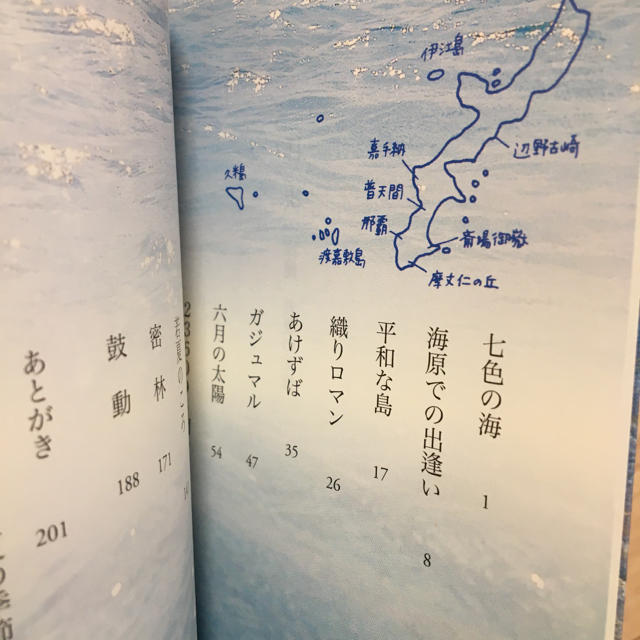 伊江島
嘉手納
辺野古崎
普天間
久米島
那覇
斎場御嶽
渡嘉敷島
摩文仁の丘
七色の海 1
海原での出逢い 8
平和な島 17
織りロマン 26
あけずば 35
ガジュマル 47
六月の太陽 54
密林 171
鼓動 188
あとがき 201